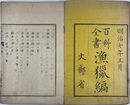 明治七年五月
百科全書
漁獵編
文部省